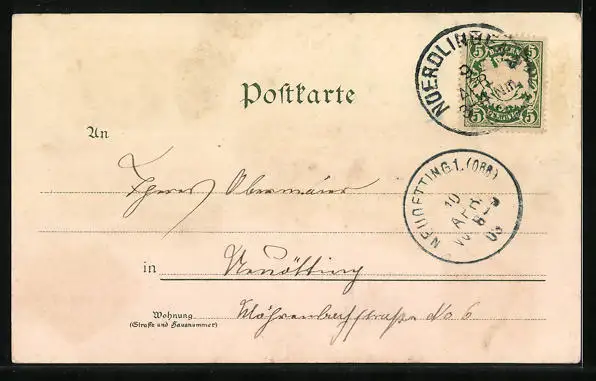 NOERDLINGEN
9 APR
BAYERN
5 5
5 5
Postkarte
An
NEUOETTING 1. (OBB)
10
APR.
03
Obermaier
in Neuötting
Wohnung
(Straße und Hausnummer)
No 6